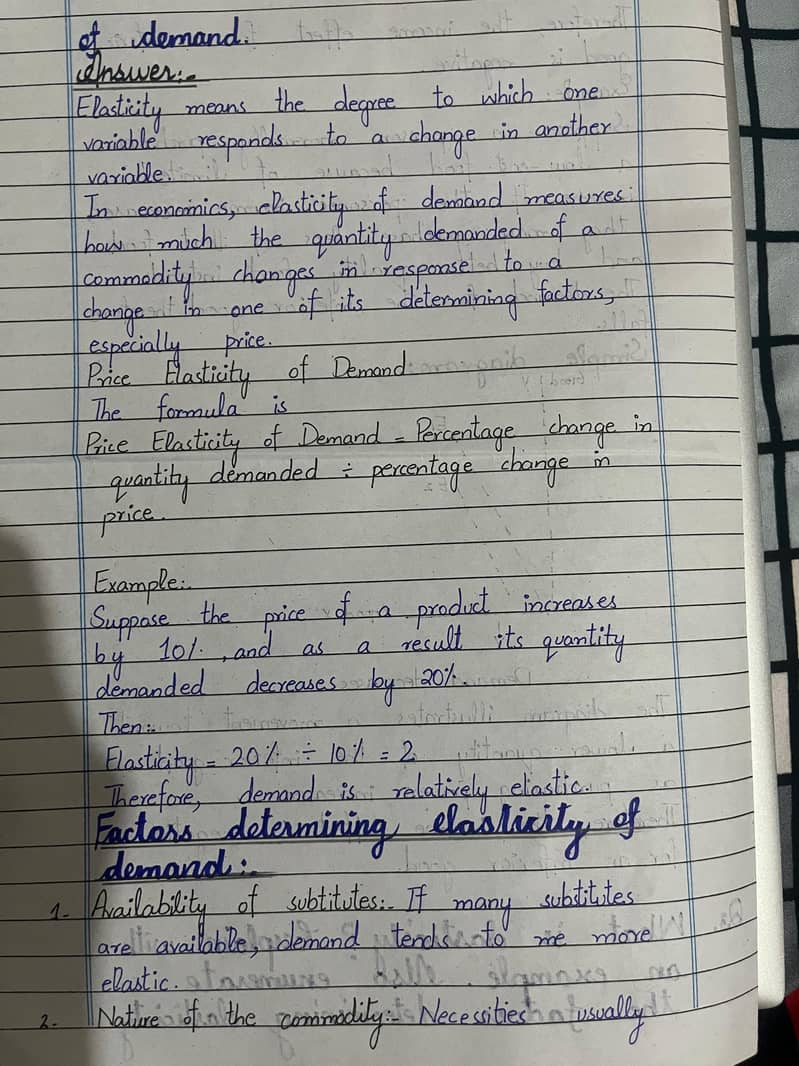 of demand.
Answer:-
Elasticity means the degree to which one
variable responds to a change in another
variable.
In economics, elasticity of demand measures
how much the quantity demanded of a
commodity changes in response to a
change in one of its determining factors,
especially price.
Price Elasticity of Demand
The formula is
Price Elasticity of Demand = Percentage change in
quantity demanded ÷ percentage change in
price.
Example:-
Suppose the price of a product increases
by 10%, and as a result its quantity
demanded decreases by 20%.
Then:-
Elasticity = 20% ÷ 10% = 2
Therefore, demand is relatively elastic.
Factors determining elasticity of
demand:-
1- Availability of subtitutes:- If many substitutes
are available, demand tends to me more
elastic.
2- Nature of the commodity:- Necessities usually